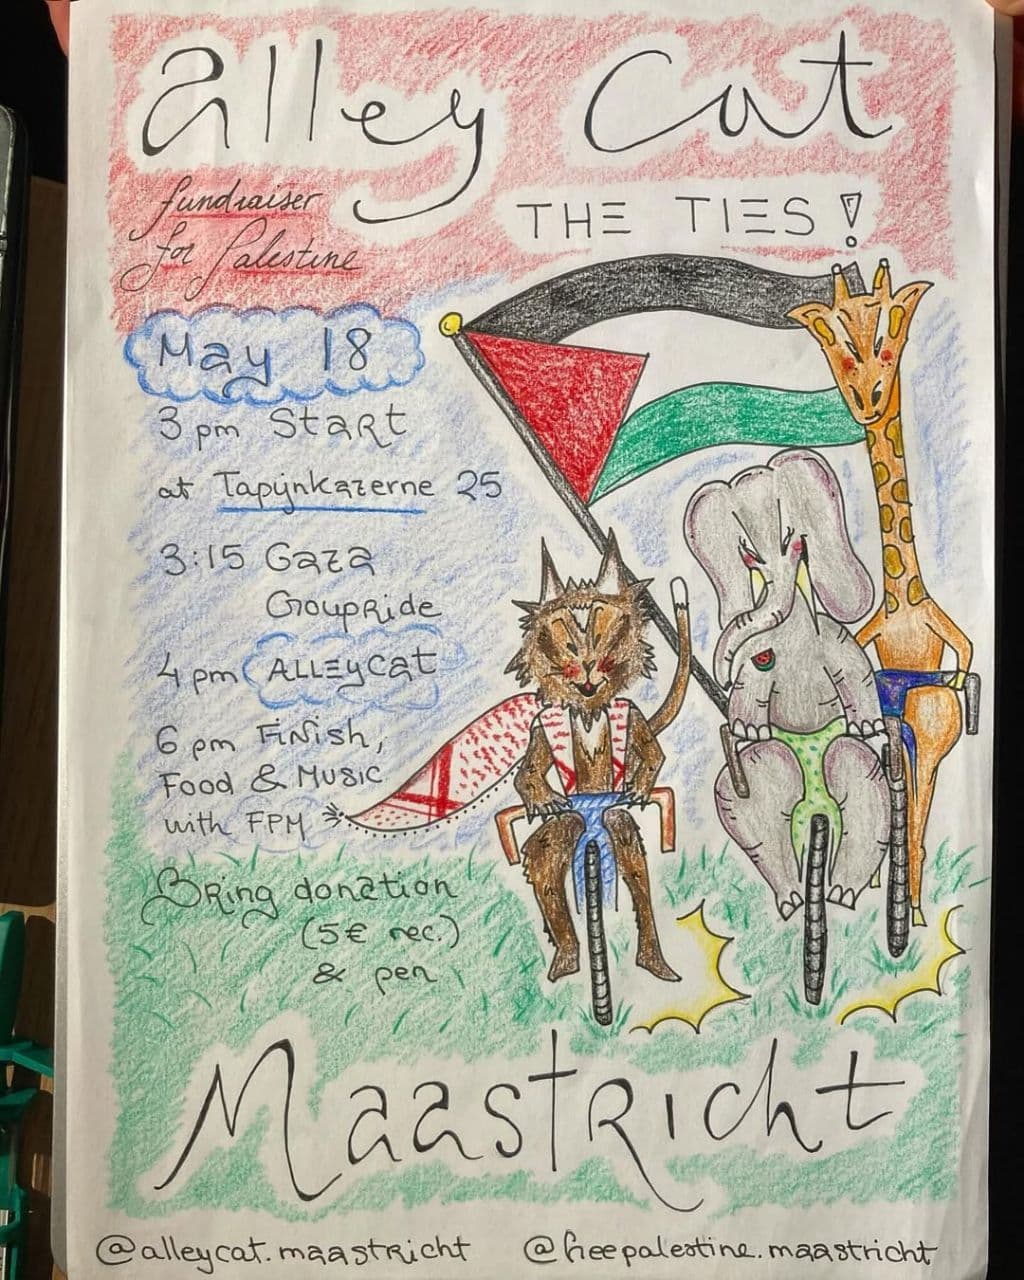 alley cat
THE TIES!
fundraiser
for Palestine
May 18
3 pm Start
at Tapijnkazerne 25
3:15 Gaza
GroupRide
4 pm ALLEYcat
6 pm Finish,
Food & Music
with FPM
Bring donation
(5€ rec.)
& pen
Maastricht
@alleycat.maastricht @freepalestine.maastricht